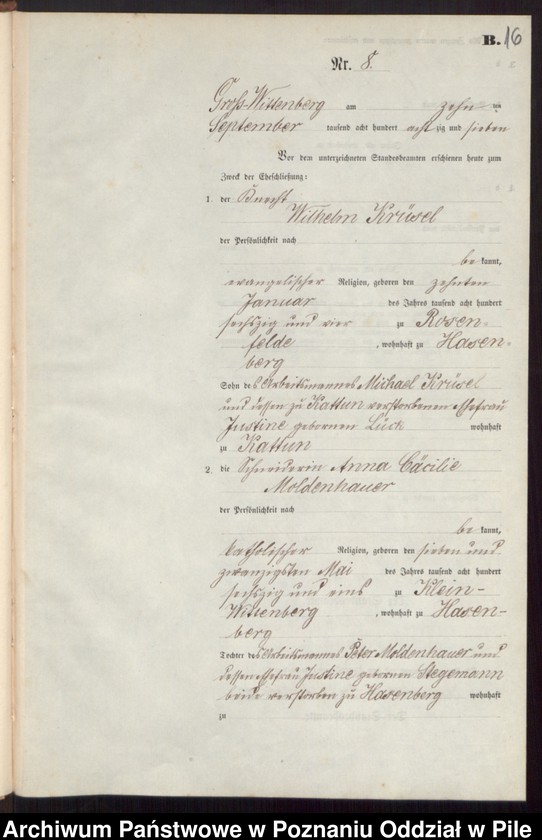 B. 16
Nr. 8.
Groß-Wittenberg am zehn ten
September tausend acht hundert acht zig und sieben
Vor dem unterzeichneten Standesbeamten erschienen heute zum
Zweck der Eheschließung:
1. der Knecht
Wilhelm Krüsel
der Persönlichkeit nach
be kannt,
evangelischer Religion, geboren den zehnten
Januar des Jahres tausend acht hundert
sechszig und vier zu Rosen-
felde, wohnhaft zu Hasen-
berg
Sohn des Arbeitsmannes Michael Krüsel
und dessen zu Kattun verstorbenen Ehefrau
Justine gebornen Lück wohnhaft
zu Kattun
2. die Schneiderin Anna Cäcilie
Moldenhauer
der Persönlichkeit nach
be kannt,
katholischer Religion, geboren den sieben und
zwanzigsten Mai des Jahres tausend acht hundert
sechszig und eins zu Klein-
Wittenberg, wohnhaft zu Hasen-
berg
Tochter des Arbeitsmannes Peter Moldenhauer und
dessen Ehefrau Justine gebornen Stegemann
beide verstorben zu Hasenberg wohnhaft
zu
Archiwum Państwowe w Poznaniu Oddział w Pile